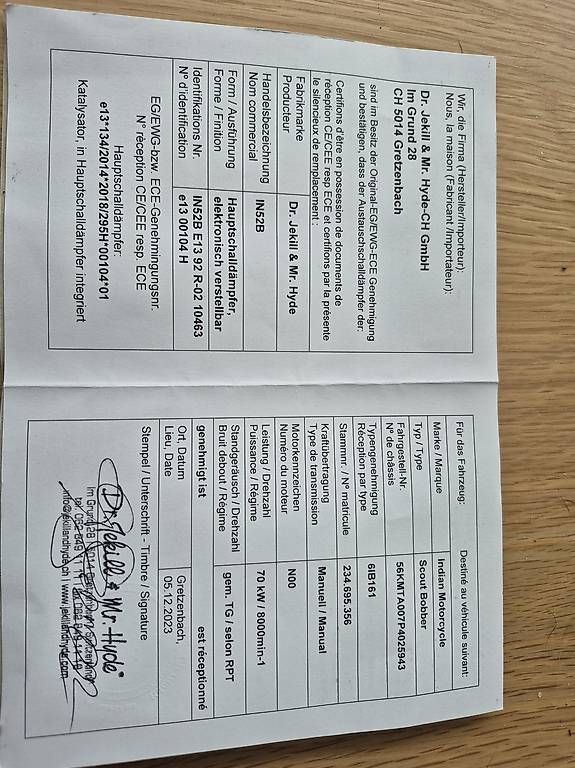 Wir, die Firma (Hersteller/Importeur):
Nous, la maison (Fabricant /Importateur):
Dr. Jekill & Mr. Hyde-CH GmbH
Im Grund 28
CH 5014 Gretzenbach
sind im Besitz der Original-EG/EWG-ECE Genehmigung
und bestätigen, dass der Austauschschalldämpfer der:
Certifions d'être en possession de documents de
réception CE/CEE resp ECE et certifions par la présente
le silencieux de remplacement :
Fabrikmarke Dr. Jekill & Mr. Hyde
Producteur
Handelsbezeichnung IN52B
Nom commercial
Form / Ausführung Hauptschalldämpfer,
Forme / Finition elektronisch verstellbar
Identifikations Nr. IN52B E13 92 R-02 10463
N° d'identification e13 00104 H
EG/EWG-bzw. ECE-Genehmigungsnr.
N° réception CE/CEE resp. ECE
Hauptschalldämpfer:
e13*134/2014*2018/295H*00104*01
Katalysator, in Hauptschalldämpfer integriert
Für das Fahrzeug: Destiné au véhicule suivant:
Marke / Marque Indian Motorcycle
Typ / Type Scout Bobber
Fahrgestell-Nr. 56KMTA007P4025943
N° de châssis
Typengenehmigung 6IB161
Réception par type
Stammnr. / N° matricule 234.695.366
Kraftübertragung Manuell / Manual
Type de transmission
Motorkennzeichen N00
Numéro du moteur
Leistung / Drehzahl 70 kW / 8000min-1
Puissance / Régime
Standgeräusch / Drehzahl gem. TG / selon RPT
Bruit debout / Régime
genehmigt ist est réceptionné
Ort, Datum Gretzenbach,
Lieu, Date 05.12.2023
Stempel / Unterschrift - Timbre / Signature
Dr. Jekill & Mr. Hyde
Im Grund 28
info@jekillandhyde.ch | www.jekillandhyde.com